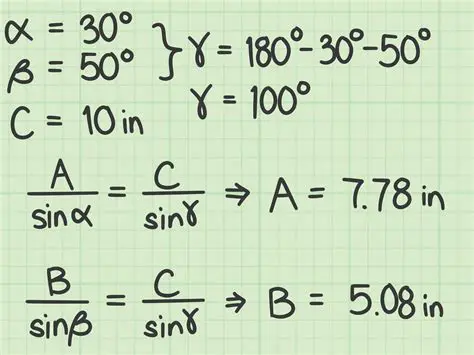 α = 30°
β = 50° } γ = 180° - 30° - 50°
γ = 100°
C = 10 in
A/sinα = C/sinγ ⇒ A = 7.78 in
B/sinβ = C/sinγ ⇒ B = 5.08 in